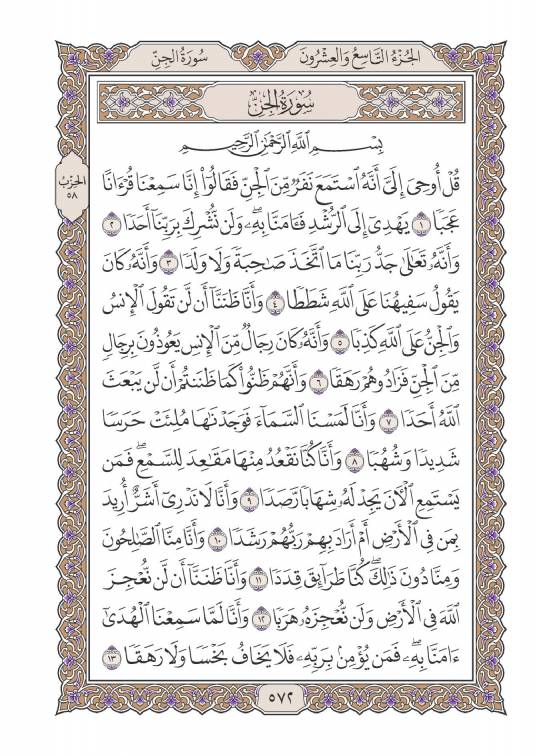 الجُزْءُ التَّاسِعُ وَالعِشْرُونَ
سُورَةُ الجِنِّ
سُورَةُ الجِنِّ
بِسْمِ ٱللَّهِ ٱلرَّحْمَٰنِ ٱلرَّحِيمِ
الحِزْبُ
٥٨
قُلْ أُوحِىَ إِلَىَّ أَنَّهُ ٱسْتَمَعَ نَفَرٌ مِّنَ ٱلْجِنِّ فَقَالُوٓا۟ إِنَّا سَمِعْنَا قُرْءَانًا
عَجَبًا ١ يَهْدِىٓ إِلَى ٱلرُّشْدِ فَـَٔامَنَّا بِهِۦ ۖ وَلَن نُّشْرِكَ بِرَبِّنَآ أَحَدًا ٢
وَأَنَّهُۥ تَعَٰلَىٰ جَدُّ رَبِّنَا مَا ٱتَّخَذَ صَٰحِبَةً وَلَا وَلَدًا ٣ وَأَنَّهُۥ كَانَ
يَقُولُ سَفِيهُنَا عَلَى ٱللَّهِ شَطَطًا ٤ وَأَنَّا ظَنَنَّآ أَن لَّن تَقُولَ ٱلْإِنسُ
وَٱلْجِنُّ عَلَى ٱللَّهِ كَذِبًا ٥ وَأَنَّهُۥ كَانَ رِجَالٌ مِّنَ ٱلْإِنسِ يَعُوذُونَ بِرِجَالٍ
مِّنَ ٱلْجِنِّ فَزَادُوهُمْ رَهَقًا ٦ وَأَنَّهُمْ ظَنُّوا۟ كَمَا ظَنَنتُمْ أَن لَّن يَبْعَثَ
ٱللَّهُ أَحَدًا ٧ وَأَنَّا لَمَسْنَا ٱلسَّمَآءَ فَوَجَدْنَٰهَا مُلِئَتْ حَرَسًا
شَدِيدًا وَشُهُبًا ٨ وَأَنَّا كُنَّا نَقْعُدُ مِنْهَا مَقَٰعِدَ لِلسَّمْعِ ۖ فَمَن
يَسْتَمِعِ ٱلْـَٔانَ يَجِدْ لَهُۥ شِهَابًا رَّصَدًا ٩ وَأَنَّا لَا نَدْرِىٓ أَشَرٌّ أُرِيدَ
بِمَن فِى ٱلْأَرْضِ أَمْ أَرَادَ بِهِمْ رَبُّهُمْ رَشَدًا ١٠ وَأَنَّا مِنَّا ٱلصَّٰلِحُونَ
وَمِنَّا دُونَ ذَٰلِكَ ۖ كُنَّا طَرَآئِقَ قِدَدًا ١١ وَأَنَّا ظَنَنَّآ أَن لَّن نُّعْجِزَ
ٱللَّهَ فِى ٱلْأَرْضِ وَلَن نُّعْجِزَهُۥ هَرَبًا ١٢ وَأَنَّا لَمَّا سَمِعْنَا ٱلْهُدَىٰٓ
ءَامَنَّا بِهِۦ ۖ فَمَن يُؤْمِنۢ بِرَبِّهِۦ فَلَا يَخَافُ بَخْسًا وَلَا رَهَقًا ١٣
٥٧٢